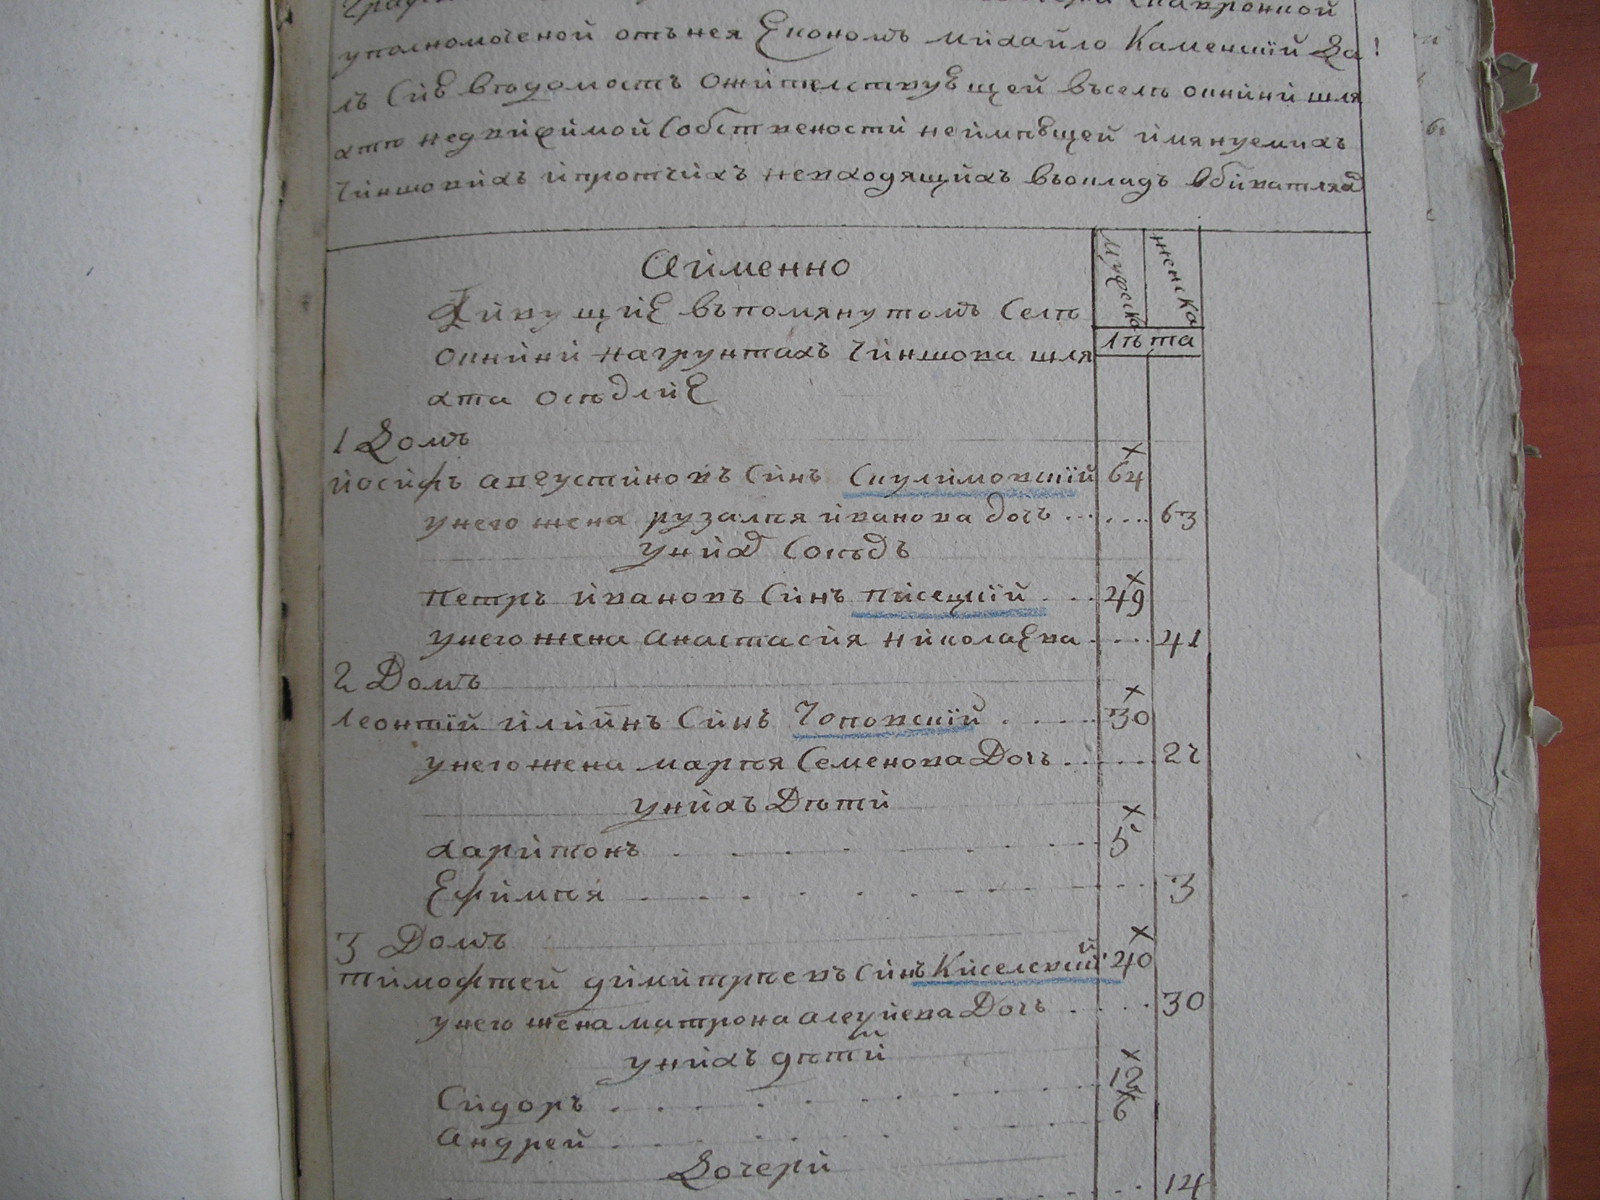 уполномоченой отънея Економъ михайло Каменский Да
лъ Сию ведомость ожителствующей въселе окнини шля
хте недвижимой собствености неимеющей имянуемихъ
Чиншовихъ ипротчихъ невходящихъ въокладъ
Аименно
Живущие въпомянутомъ Селе
окнини нагрунтахъ Чиншова шля
хта оседлие
мужска женска
лета
1 Домъ
иосифъ августиновъ Синъ Скулимовский 64
унего жена рузалия иванова дочь 63
уних Соседъ
петръ ивановъ Синъ писецкий 49
унего жена анастасия николаева 41
2 Домъ
леонтий илиинъ Синъ Чоповский 30
унего жена мария Семенова Дочь 22
унихъ Дети
харитонъ 5
Ефимия 3
3 Домъ
тимофтей димитриевъ Синъ Киселевский 40
унего жена матрона алеуиева Дочь 30
унихъ дети
Сидоръ 12
андрей 6
Дочери
14